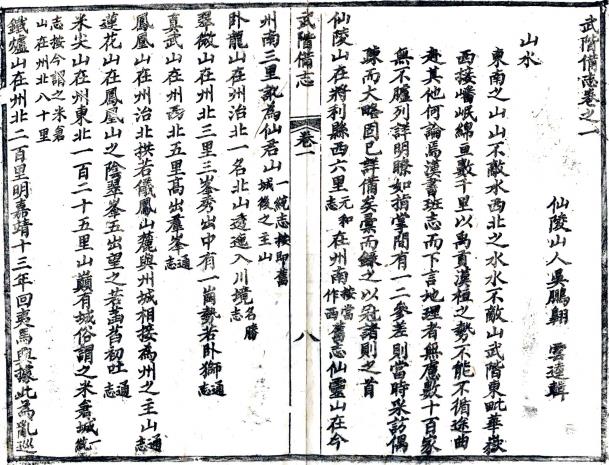 武階備志卷之一
仙陵山人吳鵬翱 雲逵輯
山水
東南之山山不敵水西北之水水不敵山武階東毗華嶽
西接嶓岷綿亘數千里以禹貢漢桓之勢不能不循途曲
赴其他何論焉漢書班志而下言地理者無慮數十百家
無不臚列詳明瞭如指掌間有一二參差則當時采訪偶
疎而大略固已詳備矣彙而錄之以冠諸則之首
仙陵山在將利縣西六里元和志在州南按當作西舊志仙靈山在今
武階備志 卷一 八
州南三里訛為仙君山一統志按即舊城後之主山
卧龍山在州治北一名北山逶迤入川境名勝志
翠微山在州北三里三峯秀出中有一崗勢若卧獅通志
真武山在州西北五里高出羣峯通志
鳳凰山在州治北拱若儀鳳山麓與州城相接為州之主山通志
蓮花山在鳳凰山之陰翠峯五出望之若菡萏初吐通志
米尖山在州東北一百二十五里山巔有城俗謂之米倉城一統
志按今謂之米倉山在州北八十里
鐵爐山在州北二百里明嘉靖十三年回夷馬 據此為亂巡